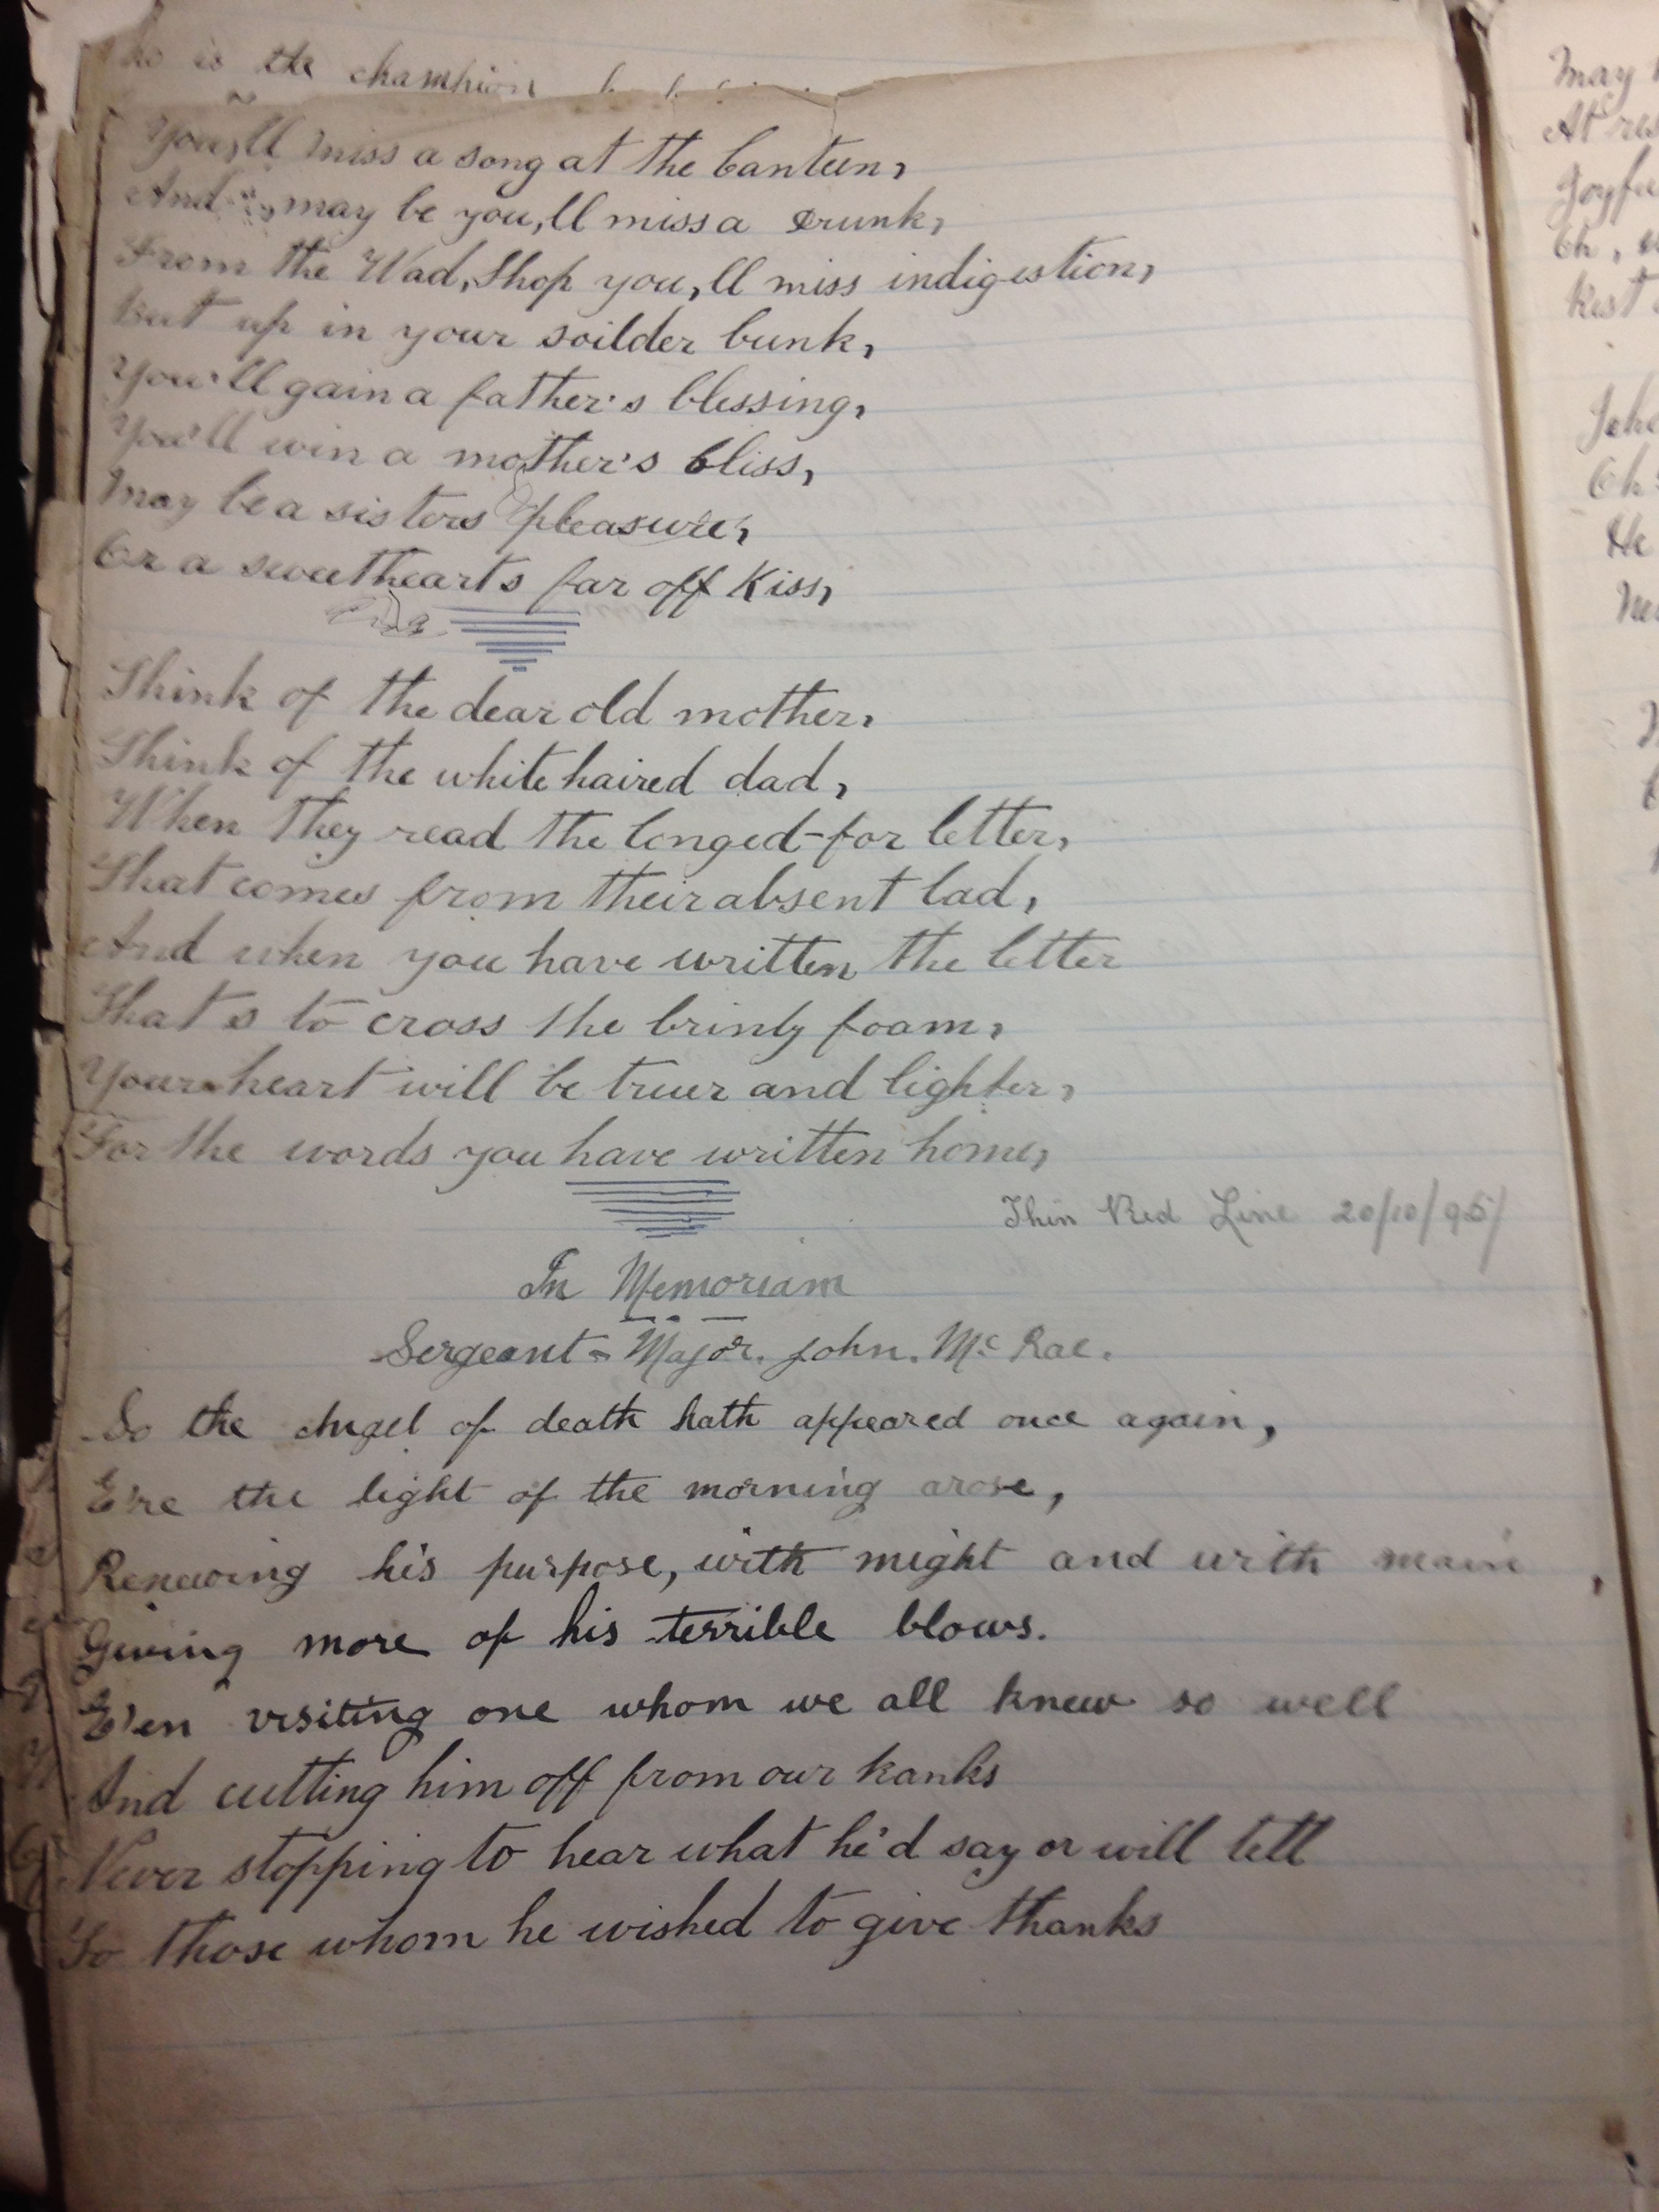 is the champion
You,ll miss a song at the Canteen,
And may be you,ll miss a drunk,
From the Wad, Shop you,ll miss indigestion,
But up in your soilder bunk,
You'll gain a father's blessing,
You'll win a mother's bliss,
May be a sisters pleasure,
Or a sweethearts far off Kiss,
Think of the dear old mother,
Think of the white haired dad,
When they read the longed-for letter,
That comes from their absent lad,
And when you have written the letter
That s to cross the brinly foam,
Your heart will be truer and lighter,
For the words you have written home,
Thin Red Line 20/10/95/
In Memoriam
Sergeant-Major. John. Mc Rae.
So the Angel of death hath appeared once again,
E're the light of the morning arose,
Renewing his purpose, with might and with main,
Giving more of his terrible blows.
E'en visiting one whom we all knew so well
And cutting him off from our ranks
Never stopping to hear what he'd say or will tell
To those whom he wished to give thanks
May
At res
Joyfu
Oh,
Rest
Jeho
Oh
He